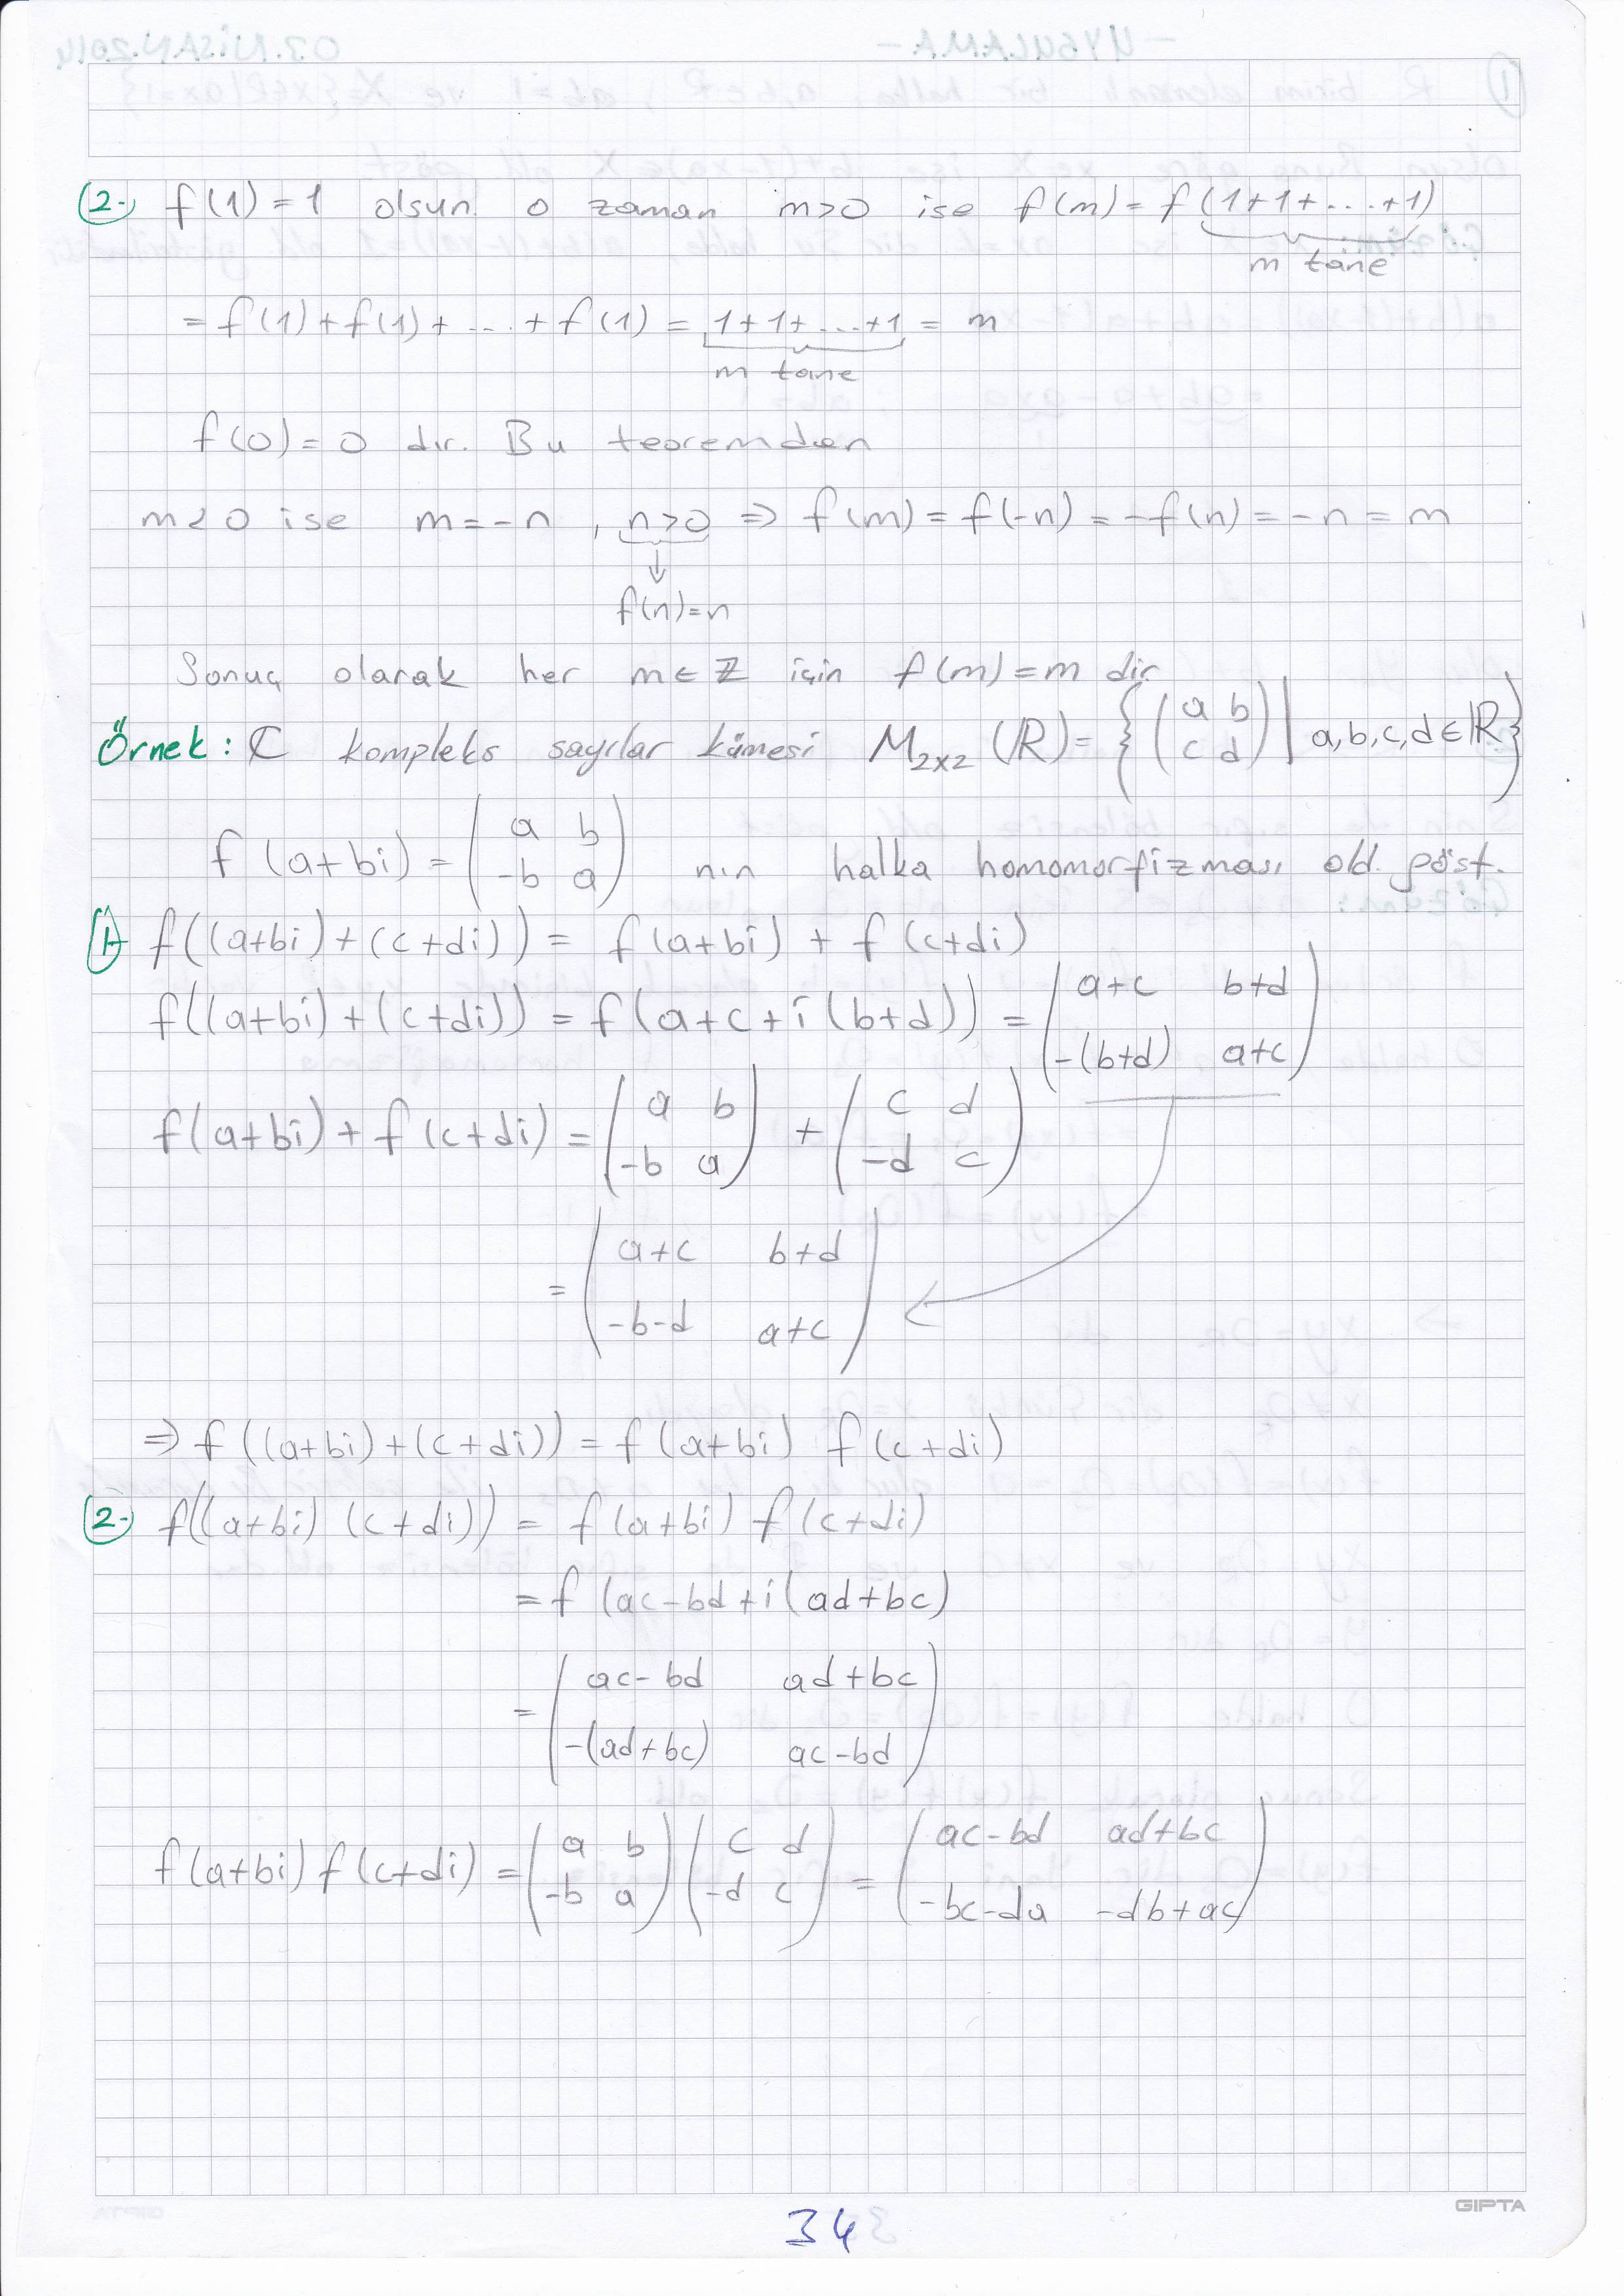 2. f(1) = 1 olsun. O zaman m>0 ise f(m) = f(1+1+...+1)
m tane
= f(1)+f(1)+ ... + f(1) = 1+1+...+1 = m
m tane
f(0) = 0 dır. Bu teoremden
m<0 ise m = -n , n>0 ⇒ f(m) = f(-n) = -f(n) = -n = m
↓
f(n)=n
Sonuç olarak her m∈ℤ için f(m) = m dir.
Örnek: ℂ kompleks sayılar kümesi M₂ₓ₂(ℝ) = { ( a b ; c d ) | a,b,c,d ∈ ℝ }
f(a+bi) = ( a b ; -b a ) nın halka homomorfizması old. göst.
1- f((a+bi)+(c+di)) = f(a+bi) + f(c+di)
f((a+bi)+(c+di)) = f(a+c+i(b+d)) = ( a+c b+d ; -(b+d) a+c )
f(a+bi)+f(c+di) = ( a b ; -b a ) + ( c d ; -d c )
= ( a+c b+d ; -b-d a+c )
⇒ f((a+bi)+(c+di)) = f(a+bi) f(c+di)
2- f((a+bi) (c+di)) = f(a+bi) f(c+di)
= f(ac-bd+i(ad+bc)
= ( ac-bd ad+bc ; -(ad+bc) ac-bd )
f(a+bi) f(c+di) = ( a b ; -b a ) ( c d ; -d c ) = ( ac-bd ad+bc ; -bc-da -db+ac )
GIPTA
34